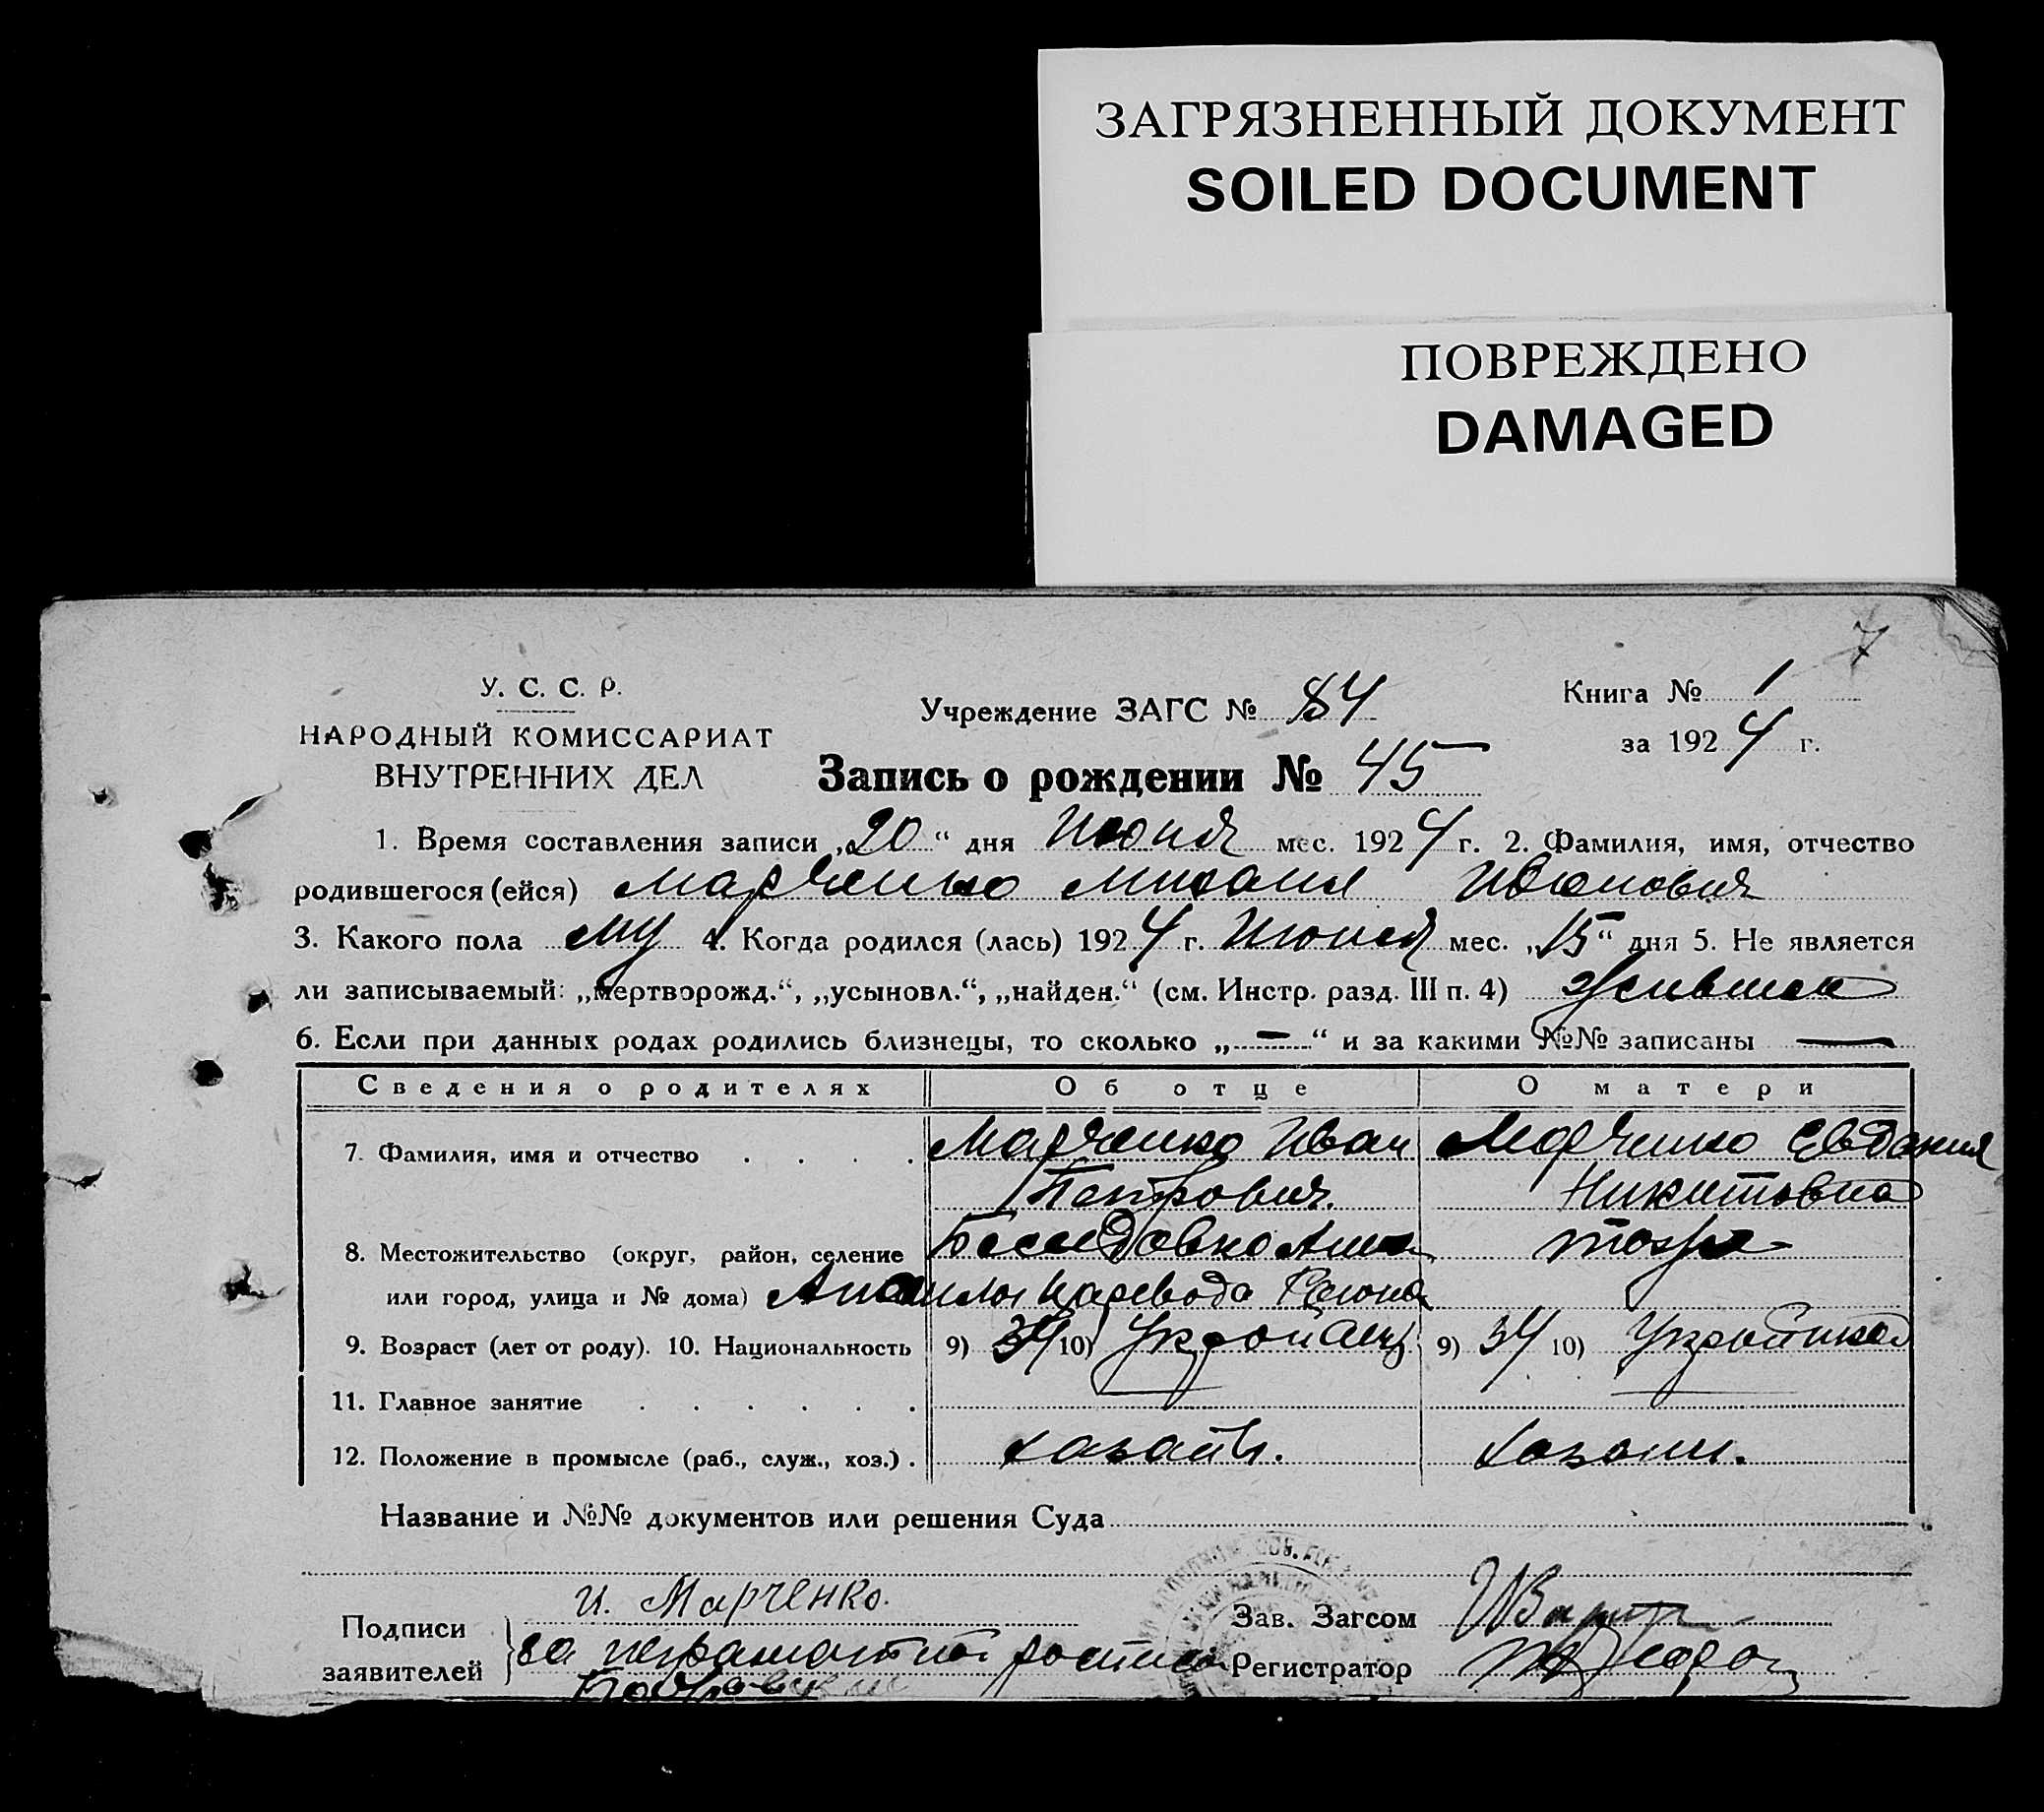 ЗАГРЯЗНЕННЫЙ ДОКУМЕНТ
SOILED DOCUMENT
ПОВРЕЖДЕНО
DAMAGED
7
У. С. С. Р.
НАРОДНЫЙ КОМИССАРИАТ
ВНУТРЕННИХ ДЕЛ
Учреждение ЗАГС № 84
Книга № 1
за 1924 г.
Запись о рождении № 45
1. Время составления записи „20“ дня Июня мес. 1924 г. 2. Фамилия, имя, отчество
родившегося (ейся) Марченко Михаил Иванович
3. Какого пола му 4. Когда родился (лась) 1924 г. Июня мес. „15“ дня 5. Не является
ли записываемый: „мертворожд.“, „усыновл.“, „найден.“ (см. Инстр. разд. III п. 4)
6. Если при данных родах родились близнецы, то сколько „—“ и за какими №№ записаны —
Сведения о родителях Об отце О матери
7. Фамилия, имя и отчество . . . . Марченко Иван Марченко Евдокия
Петрович. Никитовна
8. Местожительство (округ, район, селение
или город, улица и № дома) Района
9. Возраст (лет от роду). 10. Национальность 9) 34 10) Украинец 9) 34 10) Украинка
11. Главное занятие . . . . . .
12. Положение в промысле (раб., служ., хоз.) .
Название и №№ документов или решения Суда
Подписи заявителей
И. Марченко.
за неграмотной
Зав. Загсом
Регистратор